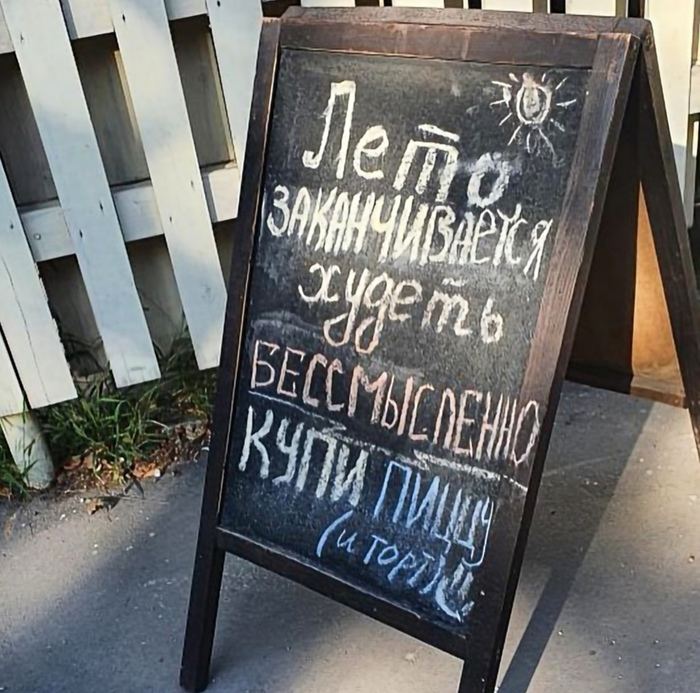 Лето
ЗАКАНЧИВАЕТСЯ
худеть
БЕССМЫСЛЕННО
КУПИ ПИЦЦУ
(и торт)